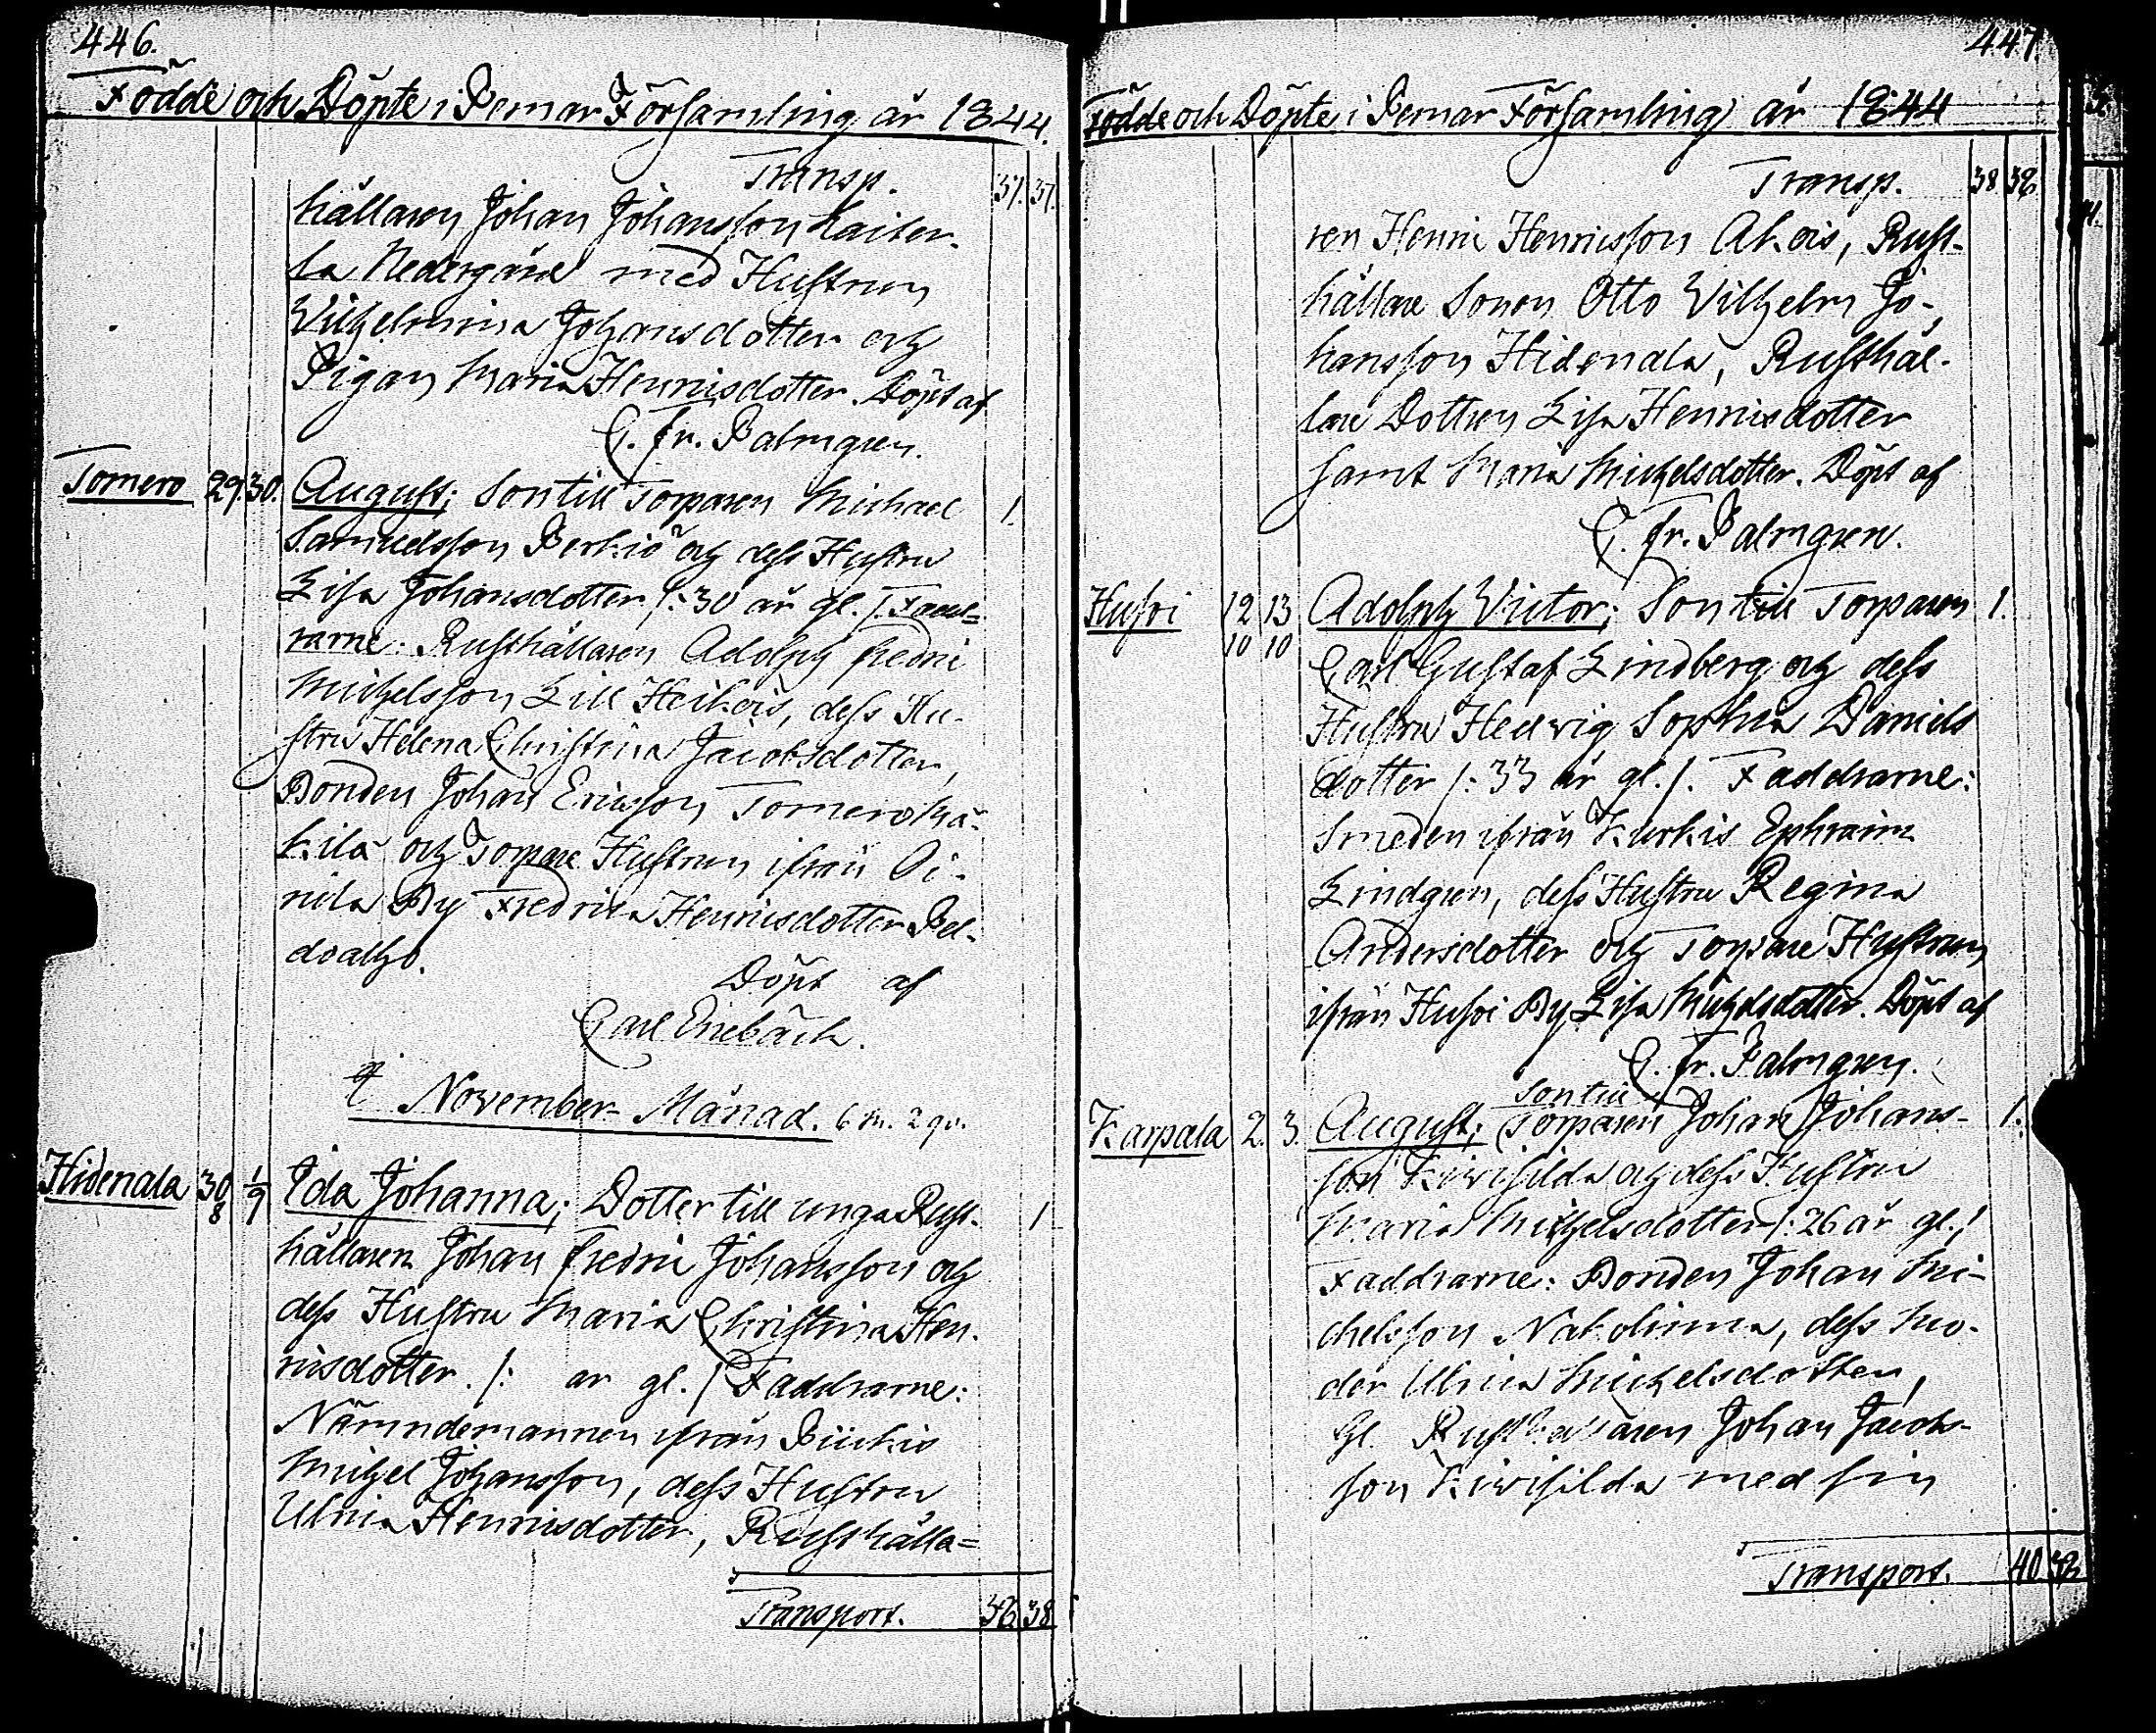 446.
Födde och Döpte i Pemar Församling år 1844.
Transp. 37. 37.
hållaren Johan Johansson Kaiter-
la Nedergård med Hustrun
Wilhelmina Johansdotter och
Pigan Maria Henricsdotter. Döpt af
C. Fr. Palmgren.
Tomero 29. 30. August; Son till Torparen Michael 1.
Samuelsson Perkiö och dess Hustru
Lisa Johansdotter /: 30 år gl. /. Fadd-
rarne: Rusthållaren Adolph Fredric
Michelsson Lill Heikois, dess Hu-
stru Helena Christina Jacobsdotter,
Bonden Johan Ericsson Tomero Mä-
kilä och Torpare Hustrun ifrån Oi-
nila By Fredrica Henricsdotter Pel-
doalho.
Döpt af
Carl Enebäck.
November Månad. 6 m. 2 qv.
Hidenala 30/8 1/9 Ida Johanna; Dotter till unga Rust- 1
hållaren Johan Fredric Johansson och
dess Hustru Maria Christina Hen-
ricsdotter. /: år gl. / Faddrarne:
Nämndemannen ifrån Pückio
Michel Johansson, dess Hustru
Ulrica Henricsdotter, Rusthålla=
Transport. 38 38
447.
Födde och Döpte i Pemar Församling år 1844
Transp. 38 38
ren Henric Henricsson Akois, Rust-
hållare Sonen Otto Vilhelm Jo-
hansson Hidenala, Rusthål-
lare Dottren Lisa Henricsdotter
samt Maria Michelsdotter. Döpt af
C. Fr. Palmgren.
Hussoi 12/10 13/10 Adolph Victor; Son till Torparen 1.
Carl Gustaf Lindberg och dess
Hustru Hedvig Sophia Daniels
dotter /: 33 år gl. /. Faddrarne:
Smeden ifrån Kurkis Ephraim
Lindgren, dess Hustru Regina
Andersdotter och Torpare Hustrun
ifrån Hussoi By Lisa Michelsdotter. Döpt af
C. Fr. Palmgren.
Son till
Karpala 2. 3. August; Torparen Johan Johans- 1.
son Kivisilda och dess Hustru
Maria Michelsdotter /: 26 år gl. /
Faddrarne: Bonden Johan Mi-
chelsson Nakolinna, dess Mo-
der Ulrica Michelsdotter,
Gl. Rusthållaren Johan Jacobs-
son Kivisilda med sin
Transport. 40 38